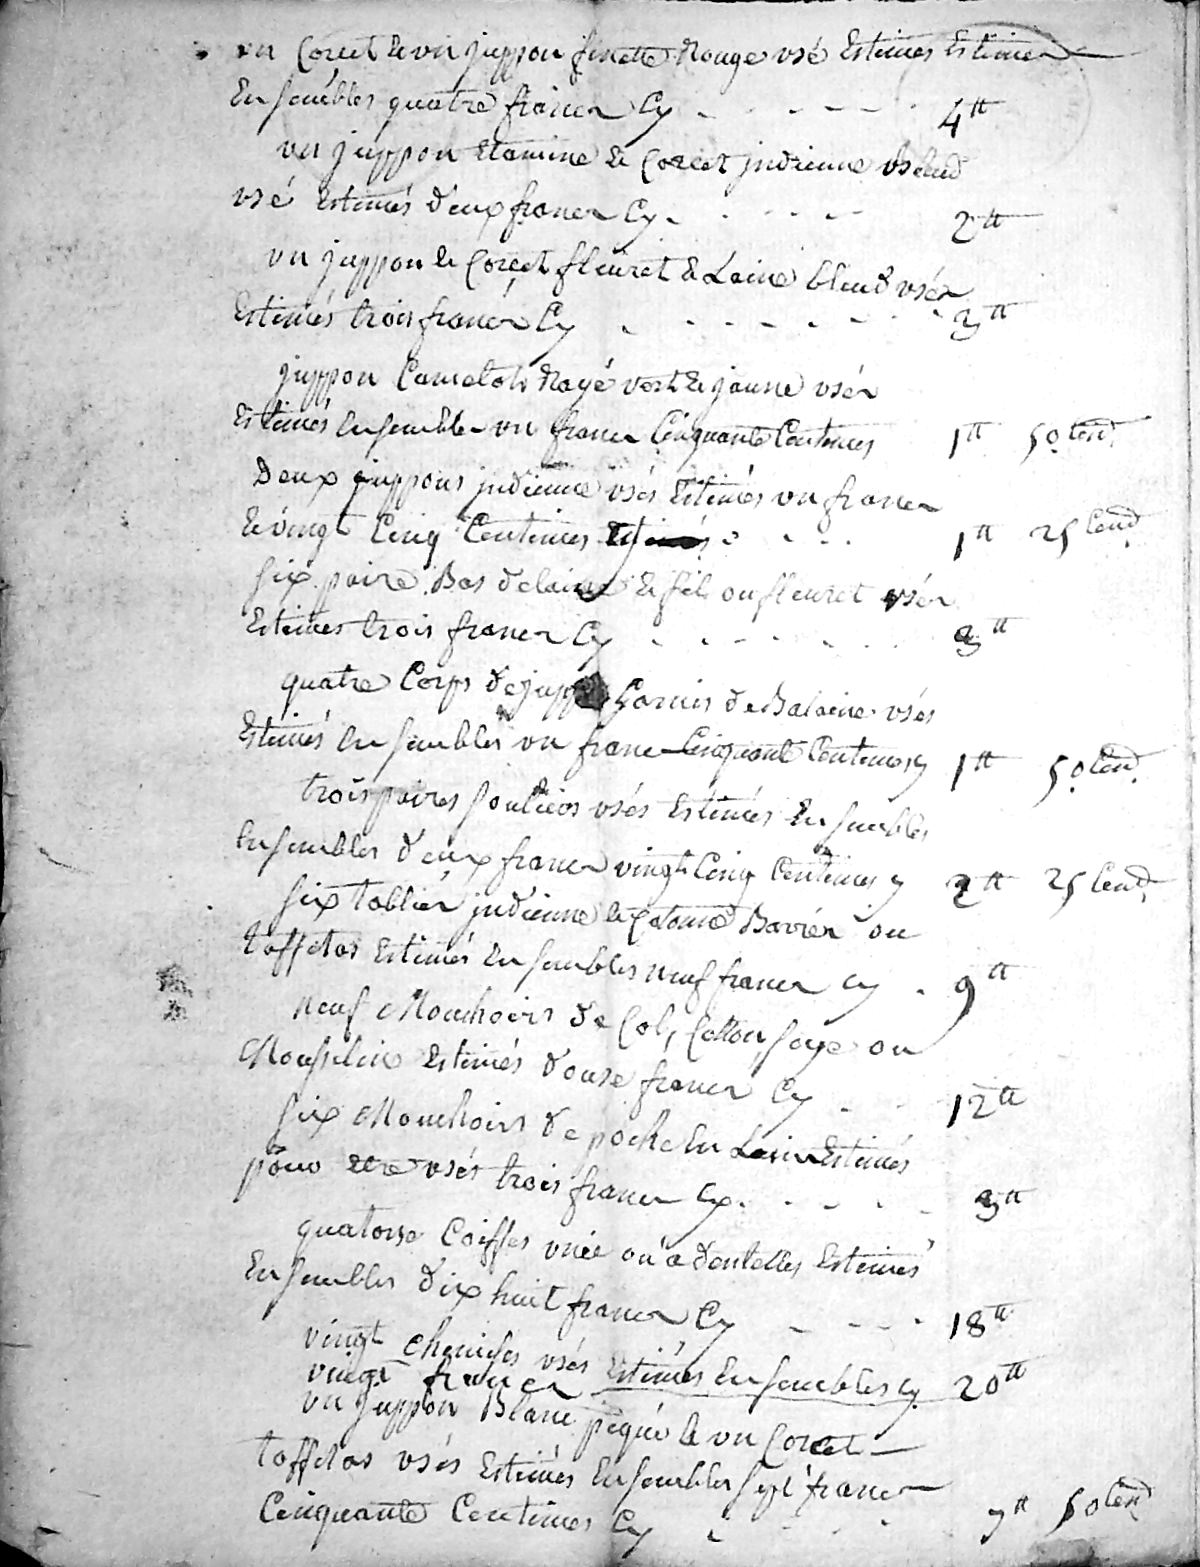 un Corcet & un juppon finette Rouge usé Estimés Estimés
Ensembles quatre francs Cy - - - - - 4tt
un juppon Etamine & Corcet judienne bleud
usé Estimés deux francs Cy - - - - 2tt
un juppon & Corcet fleuret & Laine bleud usés
Estimés trois francs Cy - - - - - - - 3tt
juppon Camelots Rayé vert & jaune usés
Estimés Ensembles un franc Cinquante Centimes 1tt 50 Cend.
Deux juppons judienne usés Estimés un franc
& vingt Cinq Centimes - - - 1tt 25 Cend.
six paire Bas de laine & fil ou fleuret usés
Estimés trois francs Cy - - - - - - 3tt
quatre Corps de juppe Garnis de Balaine usés
Estimés Ensembles un franc Cinquante Centimes Cy 1tt 50 Cend.
trois paires Souliers usés Estimés Ensembles
Ensembles deux francs vingt Cinq Centimes Cy 2tt 25 Cend.
six tablier judienne & Cotonne Barrés ou
taffetas Estimés Ensembles neuf francs Cy - 9tt
neuf Mouchoirs de Col, Cotton, Soye ou
Mousseline Estimés douse francs Cy - - 12tt
six Mouchoirs de poche En Estimés
pour Etre usés trois francs Cy - - - - 3tt
quatorse Coiffes unie ou a dentelles Estimés
Ensembles dix huit francs Cy - - - - 18tt
vingt chemises usés Estimés Ensembles Cy 20tt
vingt francs
un juppon Blanc piqué & un Corcet
taffetas usés Estimés Ensembles sept francs
Cinquante Centimes Cy - - - - 7tt 50 Cend